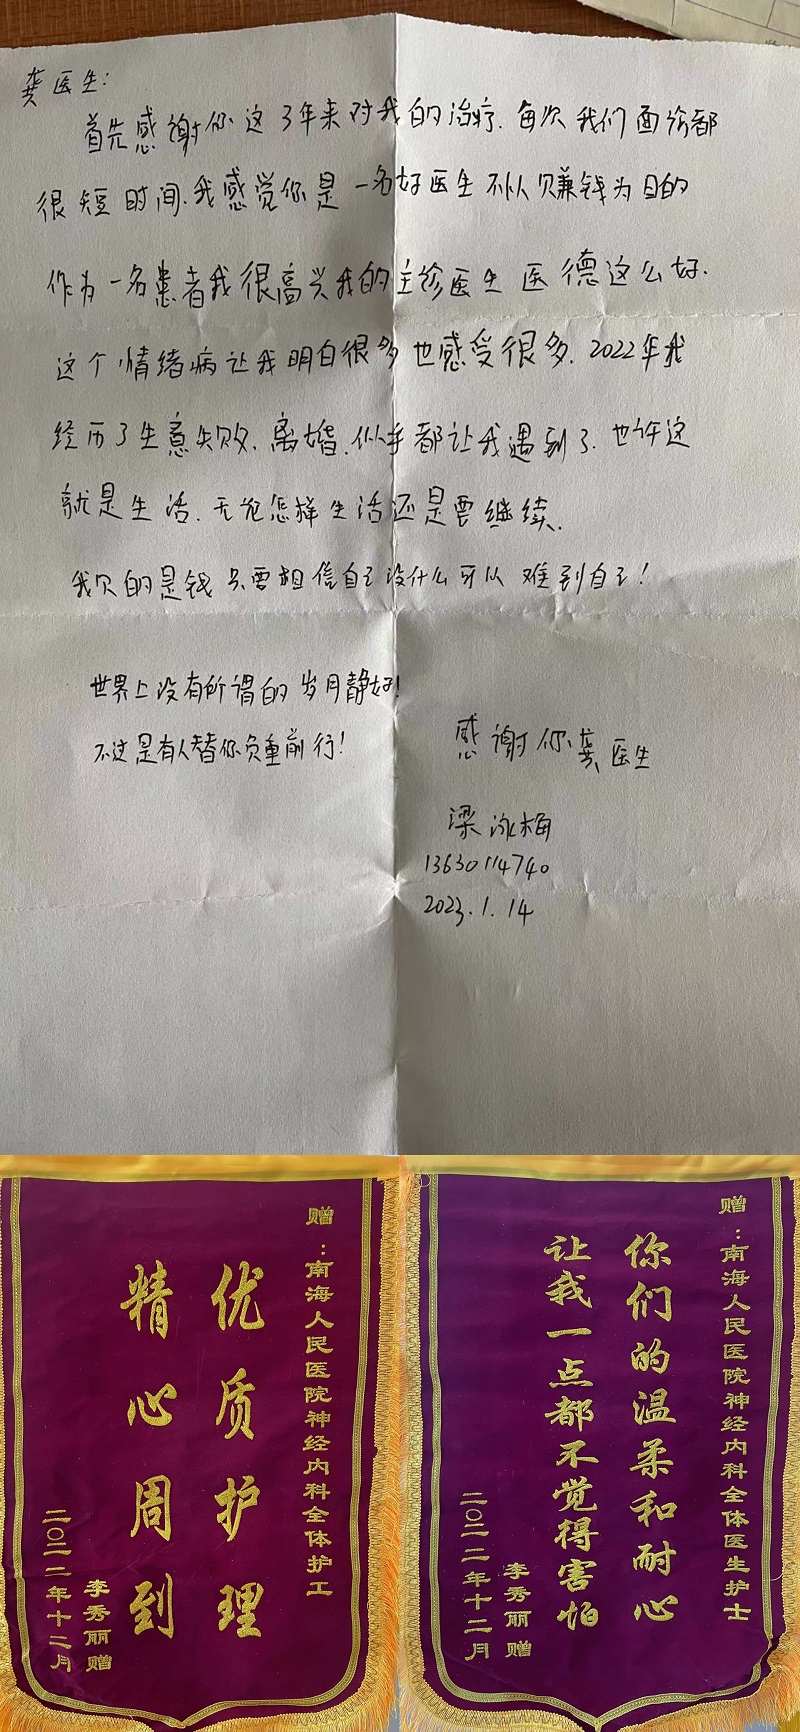 龚医生:
首先感谢你这3年来对我的治疗.每次我们面诊都
很短时间.我感觉你是一名好医生不以赚钱为目的
作为一名患者我很高兴我的主诊医生医德这么好.
这个情绪病让我明白很多也感受很多.2022年我
经历了生意失败.离婚.似乎都让我遇到了.也许这
就是生活.无论怎样生活还是要继续.
我欠的是钱只要相信自己没什么可以难到自己!
世界上没有所谓的岁月静好!
不过是有人替你负重前行!
感谢你龚医生
梁泳梅
13630114740
2023.1.14
赠:南海人民医院神经内科全体护工
优质护理
精心周到
李秀丽赠
二〇二二年十二月
赠:南海人民医院神经内科全体医生护士
你们的温柔和耐心
让我一点都不觉得害怕
李秀丽赠
二〇二二年十二月